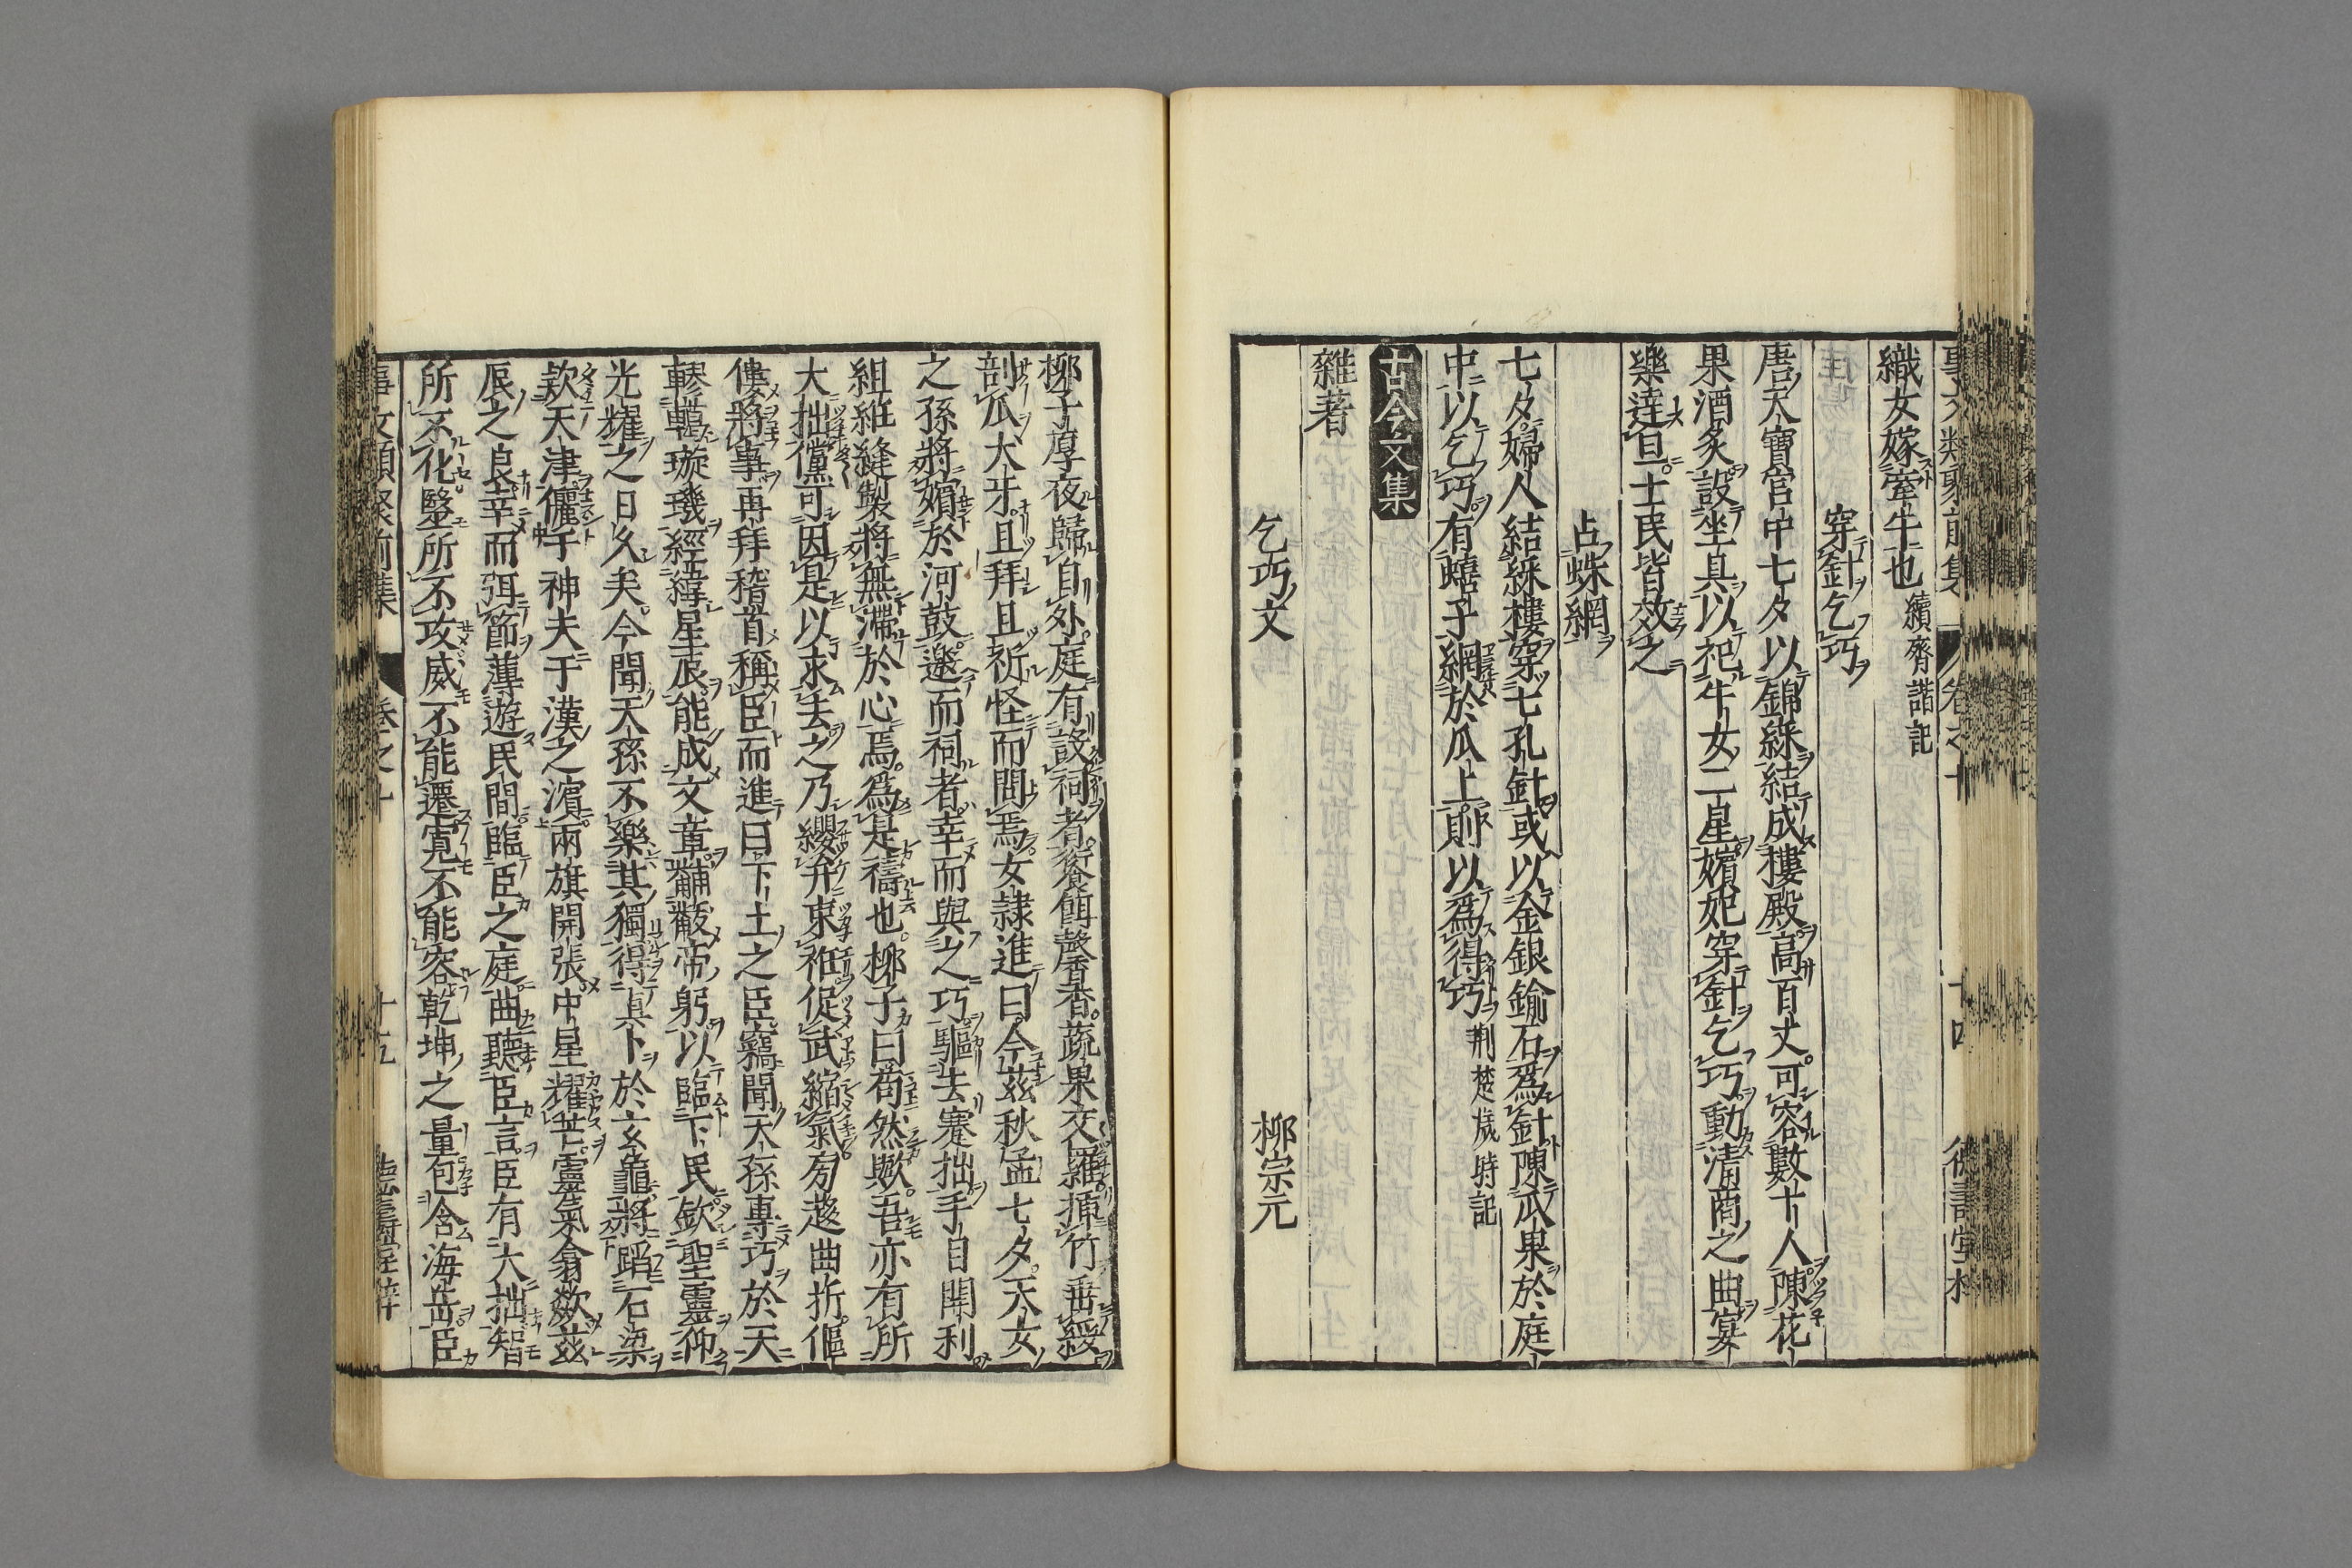 織女嫁牽牛也 續齊諧記
穿針乞巧
唐天寶宮中七夕以錦綵結成樓殿高百丈可容數十人陳花
果酒炙設坐具以祀牛女二星嬪妃穿針乞巧動清商之曲宴
樂達旦士民皆效之
占蛛網
七夕婦人結綵樓穿七孔針或以金銀鍮石爲針陳瓜果於庭
中以乞巧有蟢子網於瓜上則以爲得巧 荆楚歲時記
古今文集
雜著
乞巧文 柳宗元
柳子厚夜歸自外庭有設祠者餐餌馨香蔬果交羅揷竹垂綬
剖瓜犬牙且拜且祈怪而問焉女隷進曰今茲秋孟七夕天女
之孫將嬪於河鼓邀而祠者幸而與之巧驅去蹇拙手目開利
組紝縫製將無滯於心焉爲是禱也柳子曰苟然歟吾亦有所
大拙儻可因是以求去之乃纓弁束衽促武縮氣旁趍曲折傴
僂將事再拜稽首稱臣而進曰下土之臣竊聞天孫專巧於天
轇轕璇璣經緯星辰能成文章黼黻帝躬以臨下民欽聖靈仰
光耀之日久矣今聞天孫不樂其獨得貞卜於玄龜將蹈石梁
欵天津儷于神夫于漢之濱兩旗開張中星耀芒靈氣翕歘茲
辰之良幸而弭節薄遊民間臨臣之庭曲聽臣言臣有大拙智
所不化毉所不攻威不能遷寬不能容乾坤之量包含海岳臣
事文類聚前集 卷之十 十五